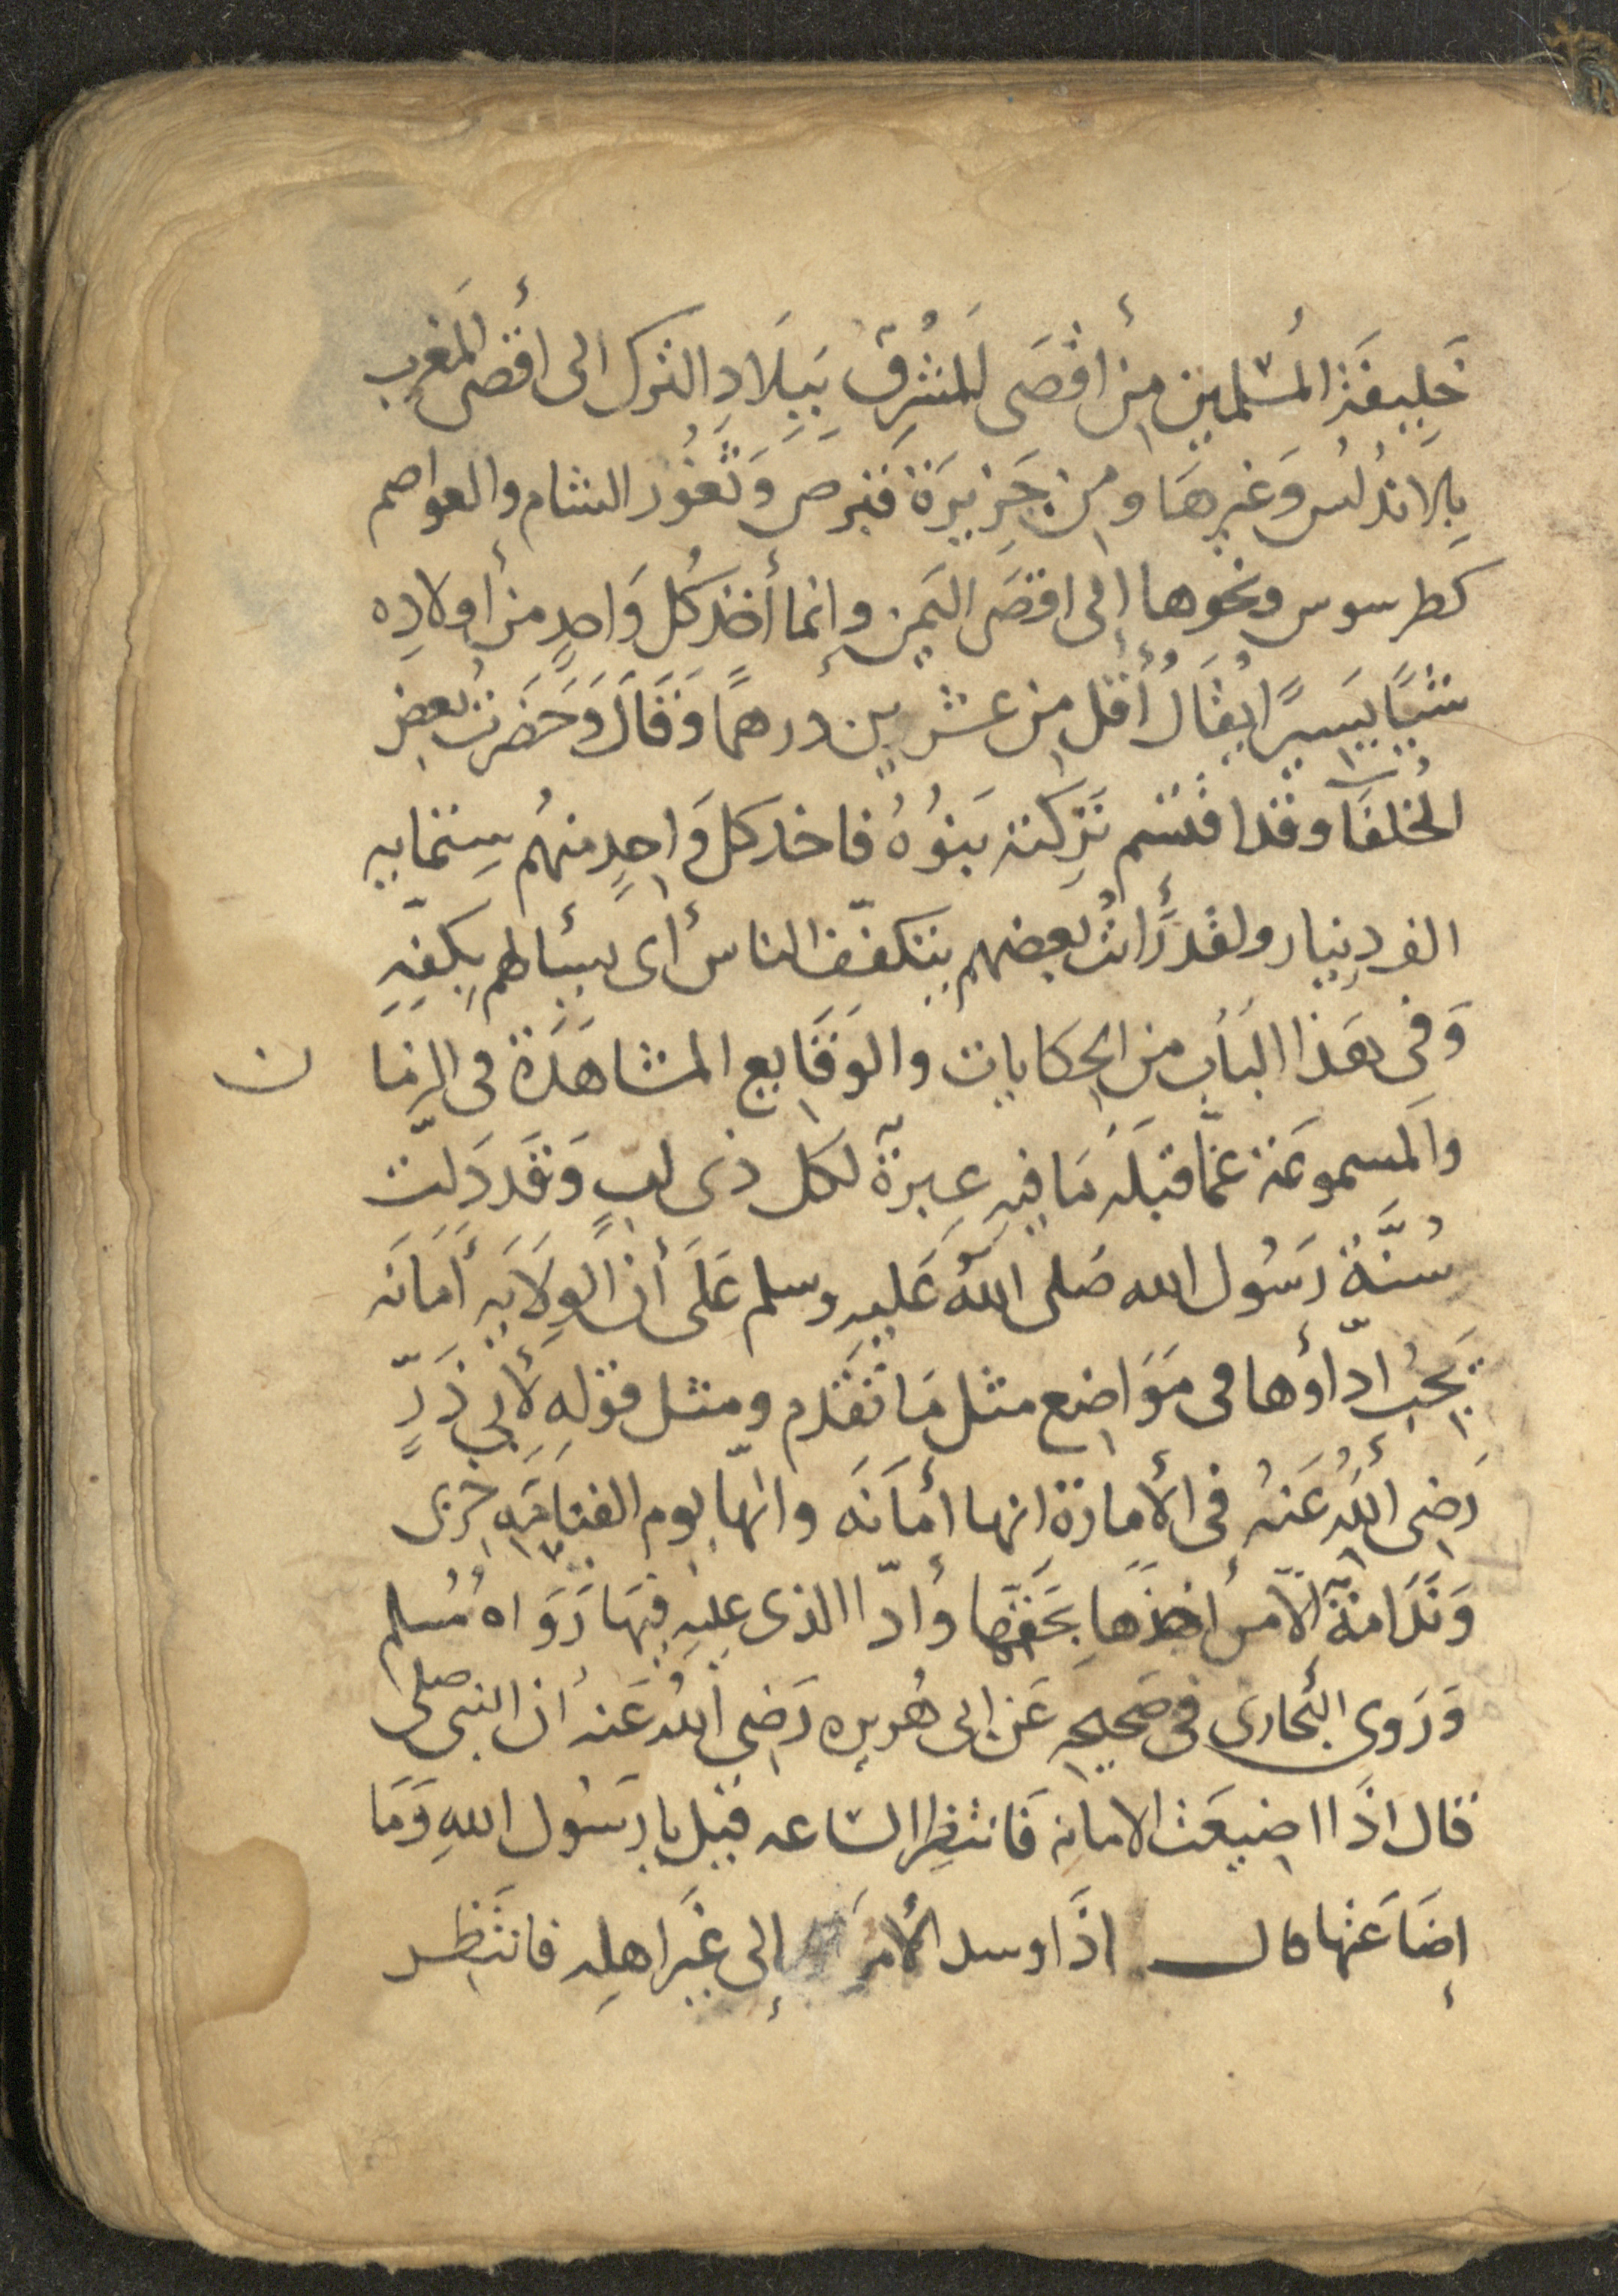 خَلِيفَة المُسْلمين مِن أقصَى المَشْرِق بِبِلَادِ الترك الى أقصى المَغرِب
بِالاندُلُس وَغيرِهَا ومِن جَزِيرَة قبرص وَثُغُور الشام والعواصم
كطرسوس ونحوها إلى اقصَى اليَمِن وإنما أخذ كُل وَاحدٍ من أولادِه
شَيًا يَسِيرًا يُقَالُ أقل مِن عشرين درهمًا وَقَالَ وَحَضَرتُ بعض
الخُلفَآ وقد اقتسَم تَرِكته بَنُوُهُ فاخد كل وَاحِدٍ منهُم سِتمايه
الف دِينار ولقد رَأيتُ بعضهم يتكفّف الناس أى يسئالهم بِكفِهِ
وَفى هَذا البَاب مِن الحِكايات والوَقَايع المشاهَدَة فى الزمَا ن
وَالمسموعَة عمّا قبَلَه مَا فيهِ عِبرَةٌ لكل ذى لبٍ وَقَد دَلّت
سُنَّة رَسُول الله صَلى اللهُ عَليهِ وسلم عَلَى أن الوِلَايَه أمَانَه
يَجبُ ادّاؤها فى مَوَاضِع مثل مَا تقَدم ومثل قولِهِ لأبِي ذَرٍّ
رَضِى اللهُ عَنهُ فى الأمارة انها أمَانَه وانهّا يوم القيَامَةِ خزى
وَنَدَامَةٌ الاّ من أخذهَا بِحَقِهَا وأدّا الذى عليهِ فِيهَا رَوَاهُ مُسلم
وَرَوى البُخارى فى صَحِيحِهِ عَن ابى هُريره رَضِى اللهُ عَنه أن النبى صلى
قال اذَا اضيعَت الامانه فَانتظِر السّاعه قيل يا رسَوُل اللهِ وَمَا
إضَاعَتها قال اذَا وسد الأمرُ إلى غَير اهلِه فانتَظِر